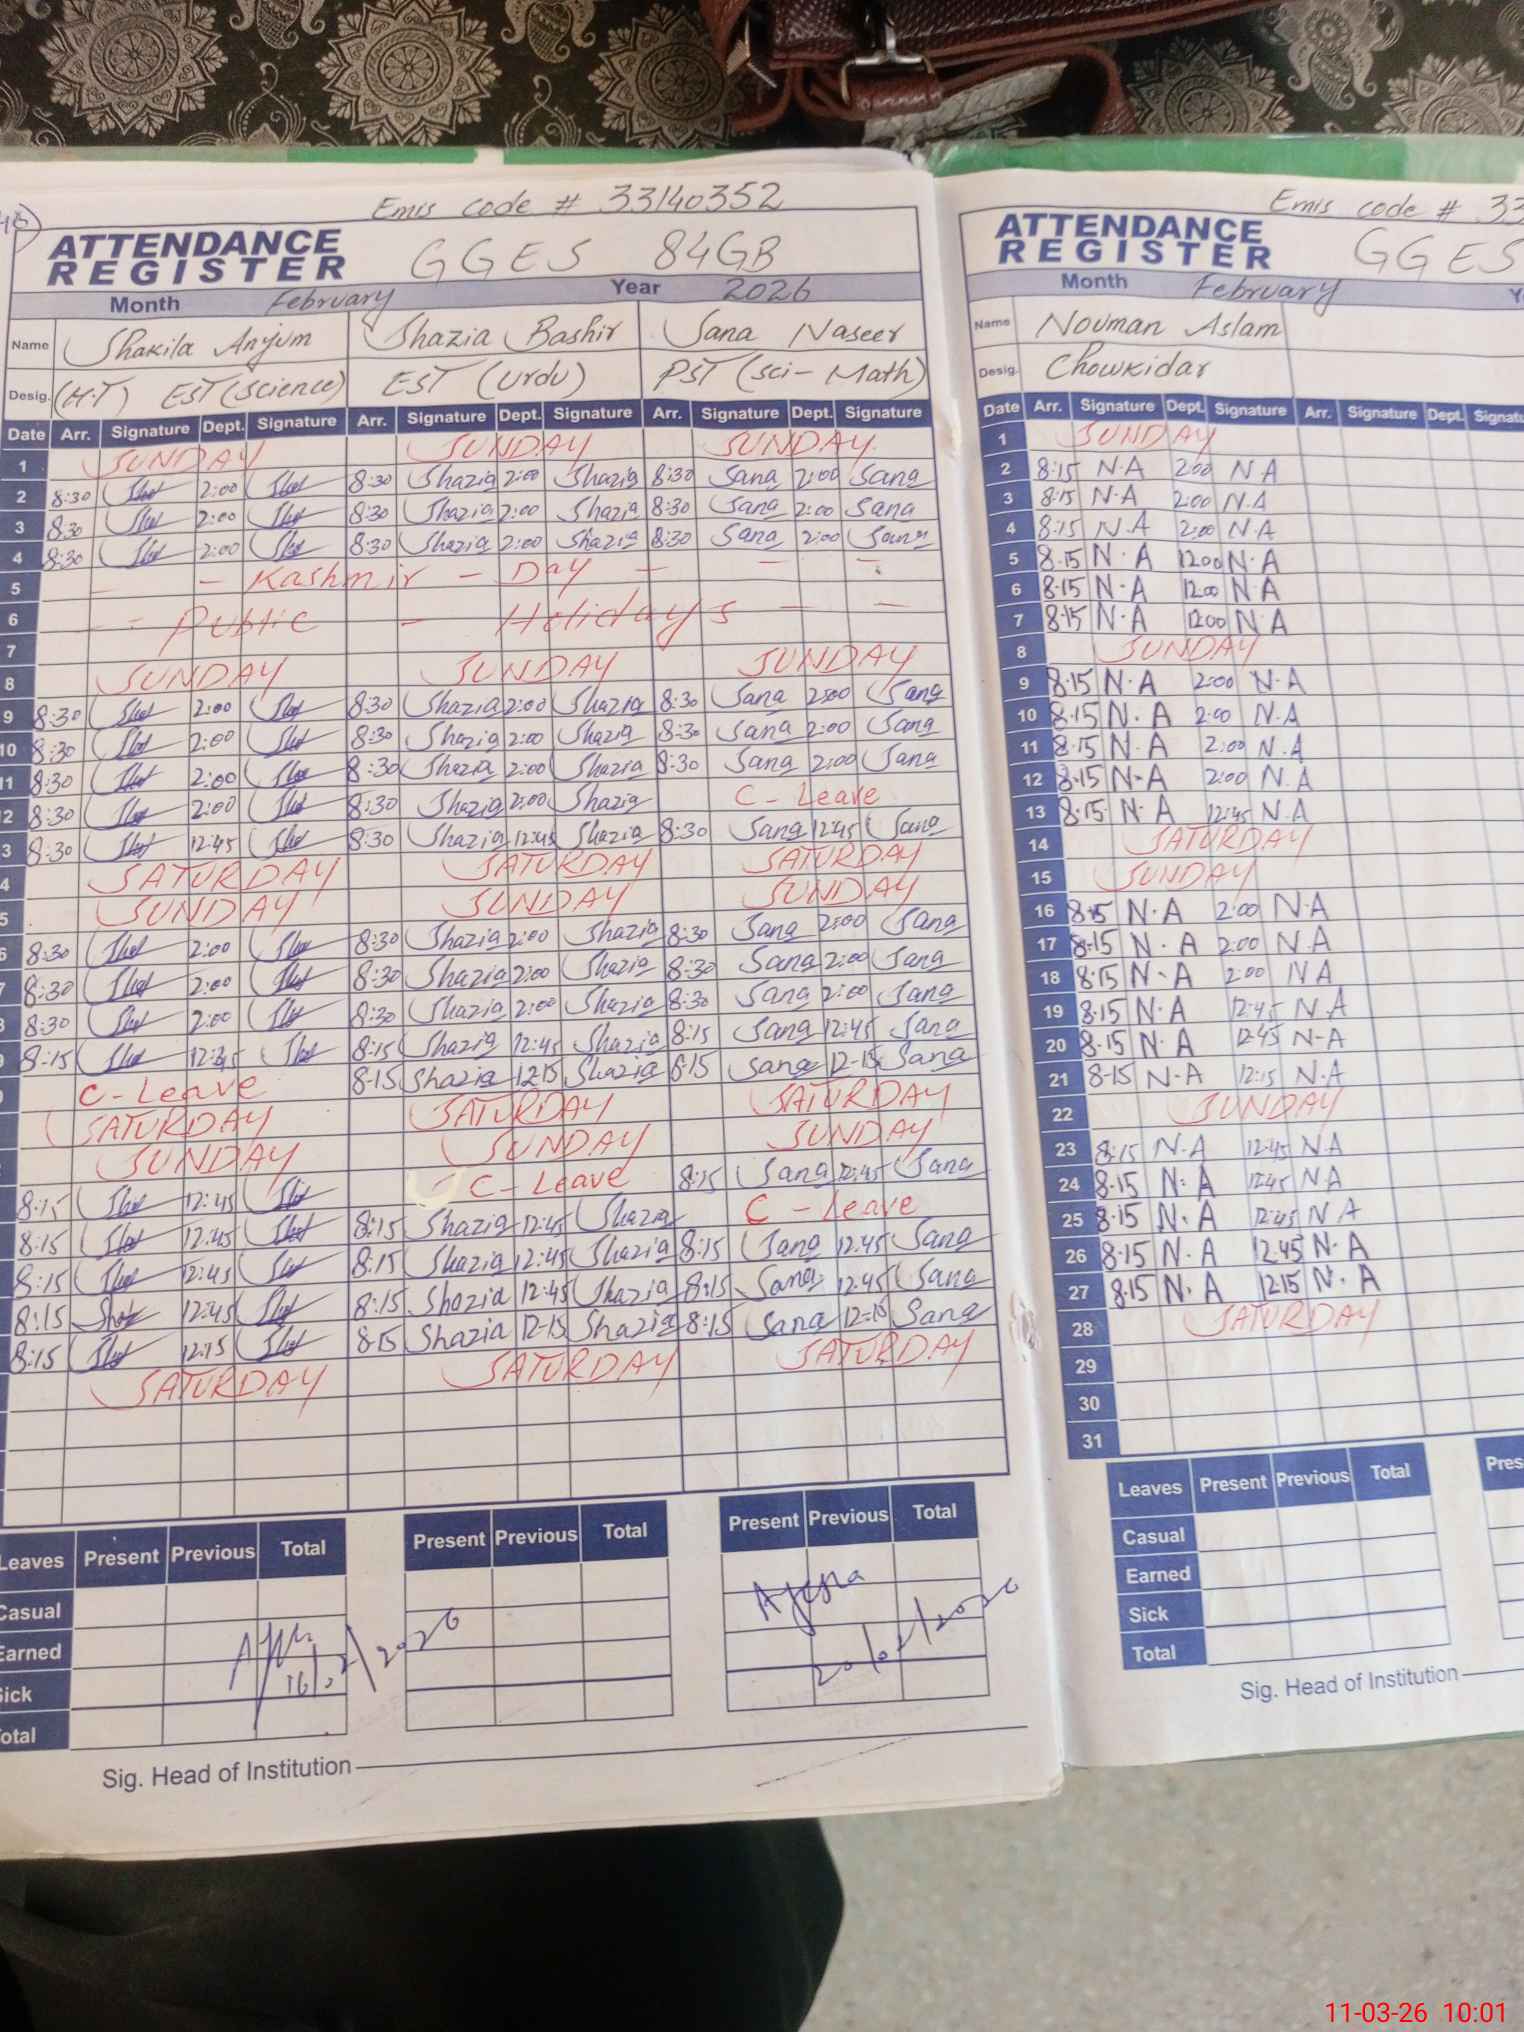 Emis code # 33140352
ATTENDANCE REGISTER GGES 84GB
Month February Year 2026
Name Shakila Anjum Shazia Bashir Sana Naseer
Desig. (H.T) EST (Science) EST (Urdu) PST (Sci-Math)
Date Arr. Signature Dept. Signature Arr. Signature Dept. Signature Arr. Signature Dept. Signature
1 SUNDAY SUNDAY SUNDAY
2 8:30 2:00 8:30 Shazia 2:00 Shazia 8:30 Sana 2:00 Sana
3 8:30 2:00 8:30 Shazia 2:00 Shazia 8:30 Sana 2:00 Sana
4 8:30 2:00 8:30 Shazia 2:00 Shazia 8:30 Sana 2:00 Sana
5 - Kashmir - Day - - -
6 - - Public - Holidays - -
7
8 SUNDAY SUNDAY SUNDAY
9 8:30 2:00 8:30 Shazia 2:00 Shazia 8:30 Sana 2:00 Sana
10 8:30 2:00 8:30 Shazia 2:00 Shazia 8:30 Sana 2:00 Sana
11 8:30 2:00 8:30 Shazia 2:00 Shazia 8:30 Sana 2:00 Sana
2 8:30 2:00 8:30 Shazia 2:00 Shazia C - Leave
3 8:30 12:45 8:30 Shazia 12:45 Shazia 8:30 Sana 12:45 Sana
4 SATURDAY SATURDAY SATURDAY
5 SUNDAY SUNDAY SUNDAY
8:30 2:00 8:30 Shazia 2:00 Shazia 8:30 Sana 2:00 Sana
8:30 2:00 8:30 Shazia 2:00 Shazia 8:30 Sana 2:00 Sana
8:30 2:00 8:30 Shazia 2:00 Shazia 8:30 Sana 2:00 Sana
8:15 12:45 8:15 Shazia 12:45 Shazia 8:15 Sana 12:45 Sana
C - Leave 8:15 Shazia 12:15 Shazia 8:15 Sana 12:15 Sana
SATURDAY SATURDAY SATURDAY
SUNDAY SUNDAY SUNDAY
8:15 12:45 C - Leave 8:15 Sana 12:45 Sana
8:15 12:45 8:15 Shazia 12:45 Shazia C - Leave
8:15 12:45 8:15 Shazia 12:45 Shazia 8:15 Sana 12:45 Sana
8:15 12:45 8:15 Shazia 12:45 Shazia 8:15 Sana 12:45 Sana
8:15 12:15 8:15 Shazia 12:15 Shazia 8:15 Sana 12:15 Sana
SATURDAY SATURDAY SATURDAY
Leaves Present Previous Total Present Previous Total Present Previous Total
Casual
Earned
Sick
Total
Sig. Head of Institution
Emis code # 33
ATTENDANCE REGISTER GGES
Month February
Name Nouman Aslam
Desig. Chowkidar
Date Arr. Signature Dept. Signature Arr. Signature Dept.
1 SUNDAY
2 8:15 N.A 2:00 N A
3 8:15 N.A 2:00 N.A
4 8:15 N.A 2:00 N A
5 8:15 N.A 12:00 N.A
6 8:15 N.A 12:00 N.A
7 8:15 N.A 12:00 N.A
8 SUNDAY
9 8:15 N.A 2:00 N.A
10 8:15 N.A 2:00 N.A
11 8:15 N.A 2:00 N.A
12 8:15 N-A 2:00 N.A
13 8:15 N.A 12:45 N.A
14 SATURDAY
15 SUNDAY
16 8:15 N.A 2:00 N.A
17 8:15 N.A 2:00 N.A
18 8:15 N.A 2:00 N A
19 8:15 N.A 12:45 N.A
20 8:15 N.A 12:45 N-A
21 8:15 N-A 12:15 N.A
22 SUNDAY
23 8:15 N.A 12:45 N.A
24 8:15 N.A 12:45 N A
25 8:15 N.A 12:45 N A
26 8:15 N.A 12:45 N.A
27 8:15 N.A 12:15 N.A
28 SATURDAY
29
30
31
Leaves Present Previous Total
Casual
Earned
Sick
Total
Sig. Head of Institution
11-03-26 10:01